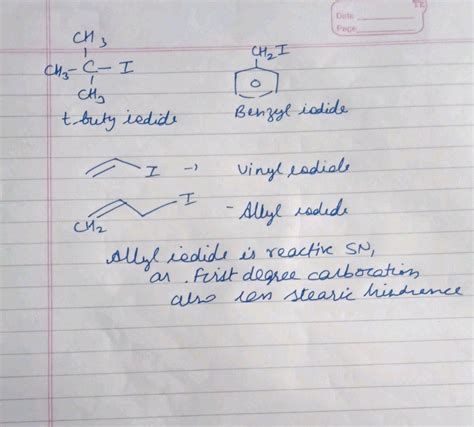 TE
Date
Page
CH3
CH3-C-I
CH3
t-buty iodide
CH2I
Benzyl iodide
I → Vinyl iodide
I - Allyl iodide
CH2
Allyl iodide is reactive SN1
as . First degree carbocation
also less stearic hindrence